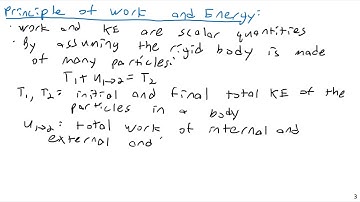 Principle of Work and Energy:
· Work and KE are scalar quantities
· By assuming the rigid body is made
of many particles:
T₁ + U₁→₂ = T₂
T₁, T₂: initial and final total KE of the
particles in a body
U₁→₂: total work of internal and
external and
3